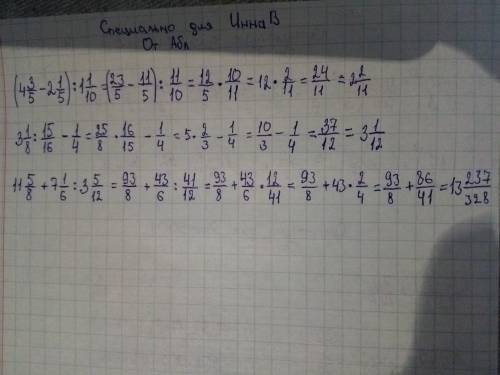 Специально для ИннаВ
От Абл
(4 3/5 - 2 1/5) : 1 1/10 = (23/5 - 11/5) : 11/10 = 12/5 · 10/11 = 12 · 2/11 = 24/11 = 2 2/11
3 1/8 : 15/16 - 1/4 = 25/8 · 16/15 - 1/4 = 5 · 2/3 - 1/4 = 10/3 - 1/4 = 37/12 = 3 1/12
11 5/8 + 7 1/6 : 3 5/12 = 93/8 + 43/6 : 41/12 = 93/8 + 43/6 · 12/41 = 93/8 + 43 · 2/4 = 93/8 + 86/41 = 13 237/328